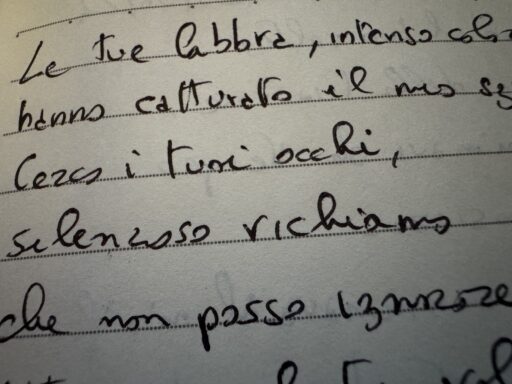 Le tue labbra, intenso
hanno catturato il mio
Cerco i tuoi occhi,
silenzioso richiamo
che non posso ignorare